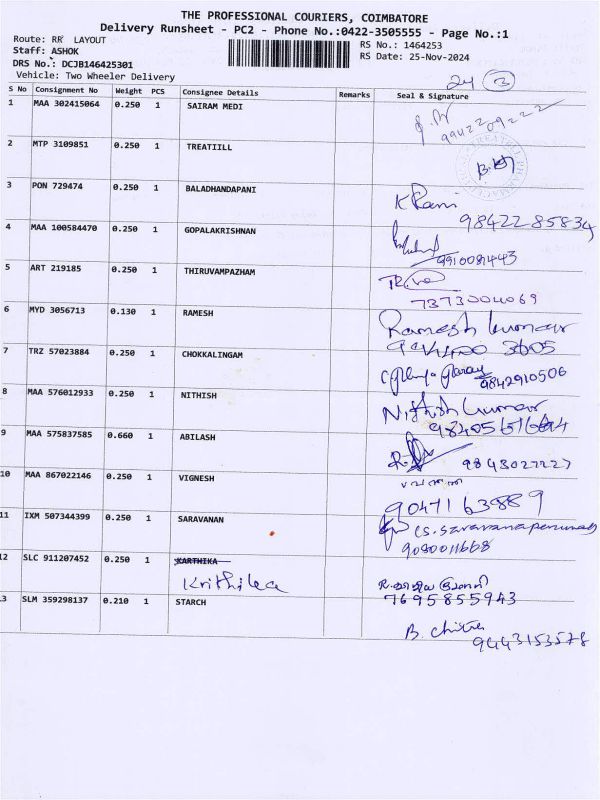 THE PROFESSIONAL COURIERS, COIMBATORE
Delivery Runsheet - PC2 - Phone No.:0422-3505555 - Page No.:1
Route: RR LAYOUT
RS No.: 1464253
Staff: ASHOK
RS Date: 25-Nov-2024
DRS No.: DCJB146425301
Vehicle: Two Wheeler Delivery
24 3
S No Consignment No Weight PCS Consignee Details Remarks Seal & Signature
1 MAA 302415064 0.250 1 SAIRAM MEDI
2 MTP 3109851 0.250 1 TREATIILL
3 PON 729474 0.250 1 BALADHANDAPANI K Rani
98422 85834
4 MAA 100584470 0.250 1 GOPALAKRISHNAN
9910081443
5 ART 219185 0.250 1 THIRUVAMPAZHAM
7373004069
6 MYD 3056713 0.130 1 RAMESH Ramesh kumar
7 TRZ 57023884 0.250 1 CHOKKALINGAM
9842910506
8 MAA 576012933 0.250 1 NITHISH Nithish kumar
9 MAA 575837585 0.660 1 ABILASH
9843027227
10 MAA 867022146 0.250 1 VIGNESH
90471 63889
11 IXM 507344399 0.250 1 SARAVANAN (S. Saravanaperumal)
9080011668
12 SLC 911207452 0.250 1 KARTHIKA
Krithika
7695855943
13 SLM 359298137 0.210 1 STARCH
B. Chitra
9443153578